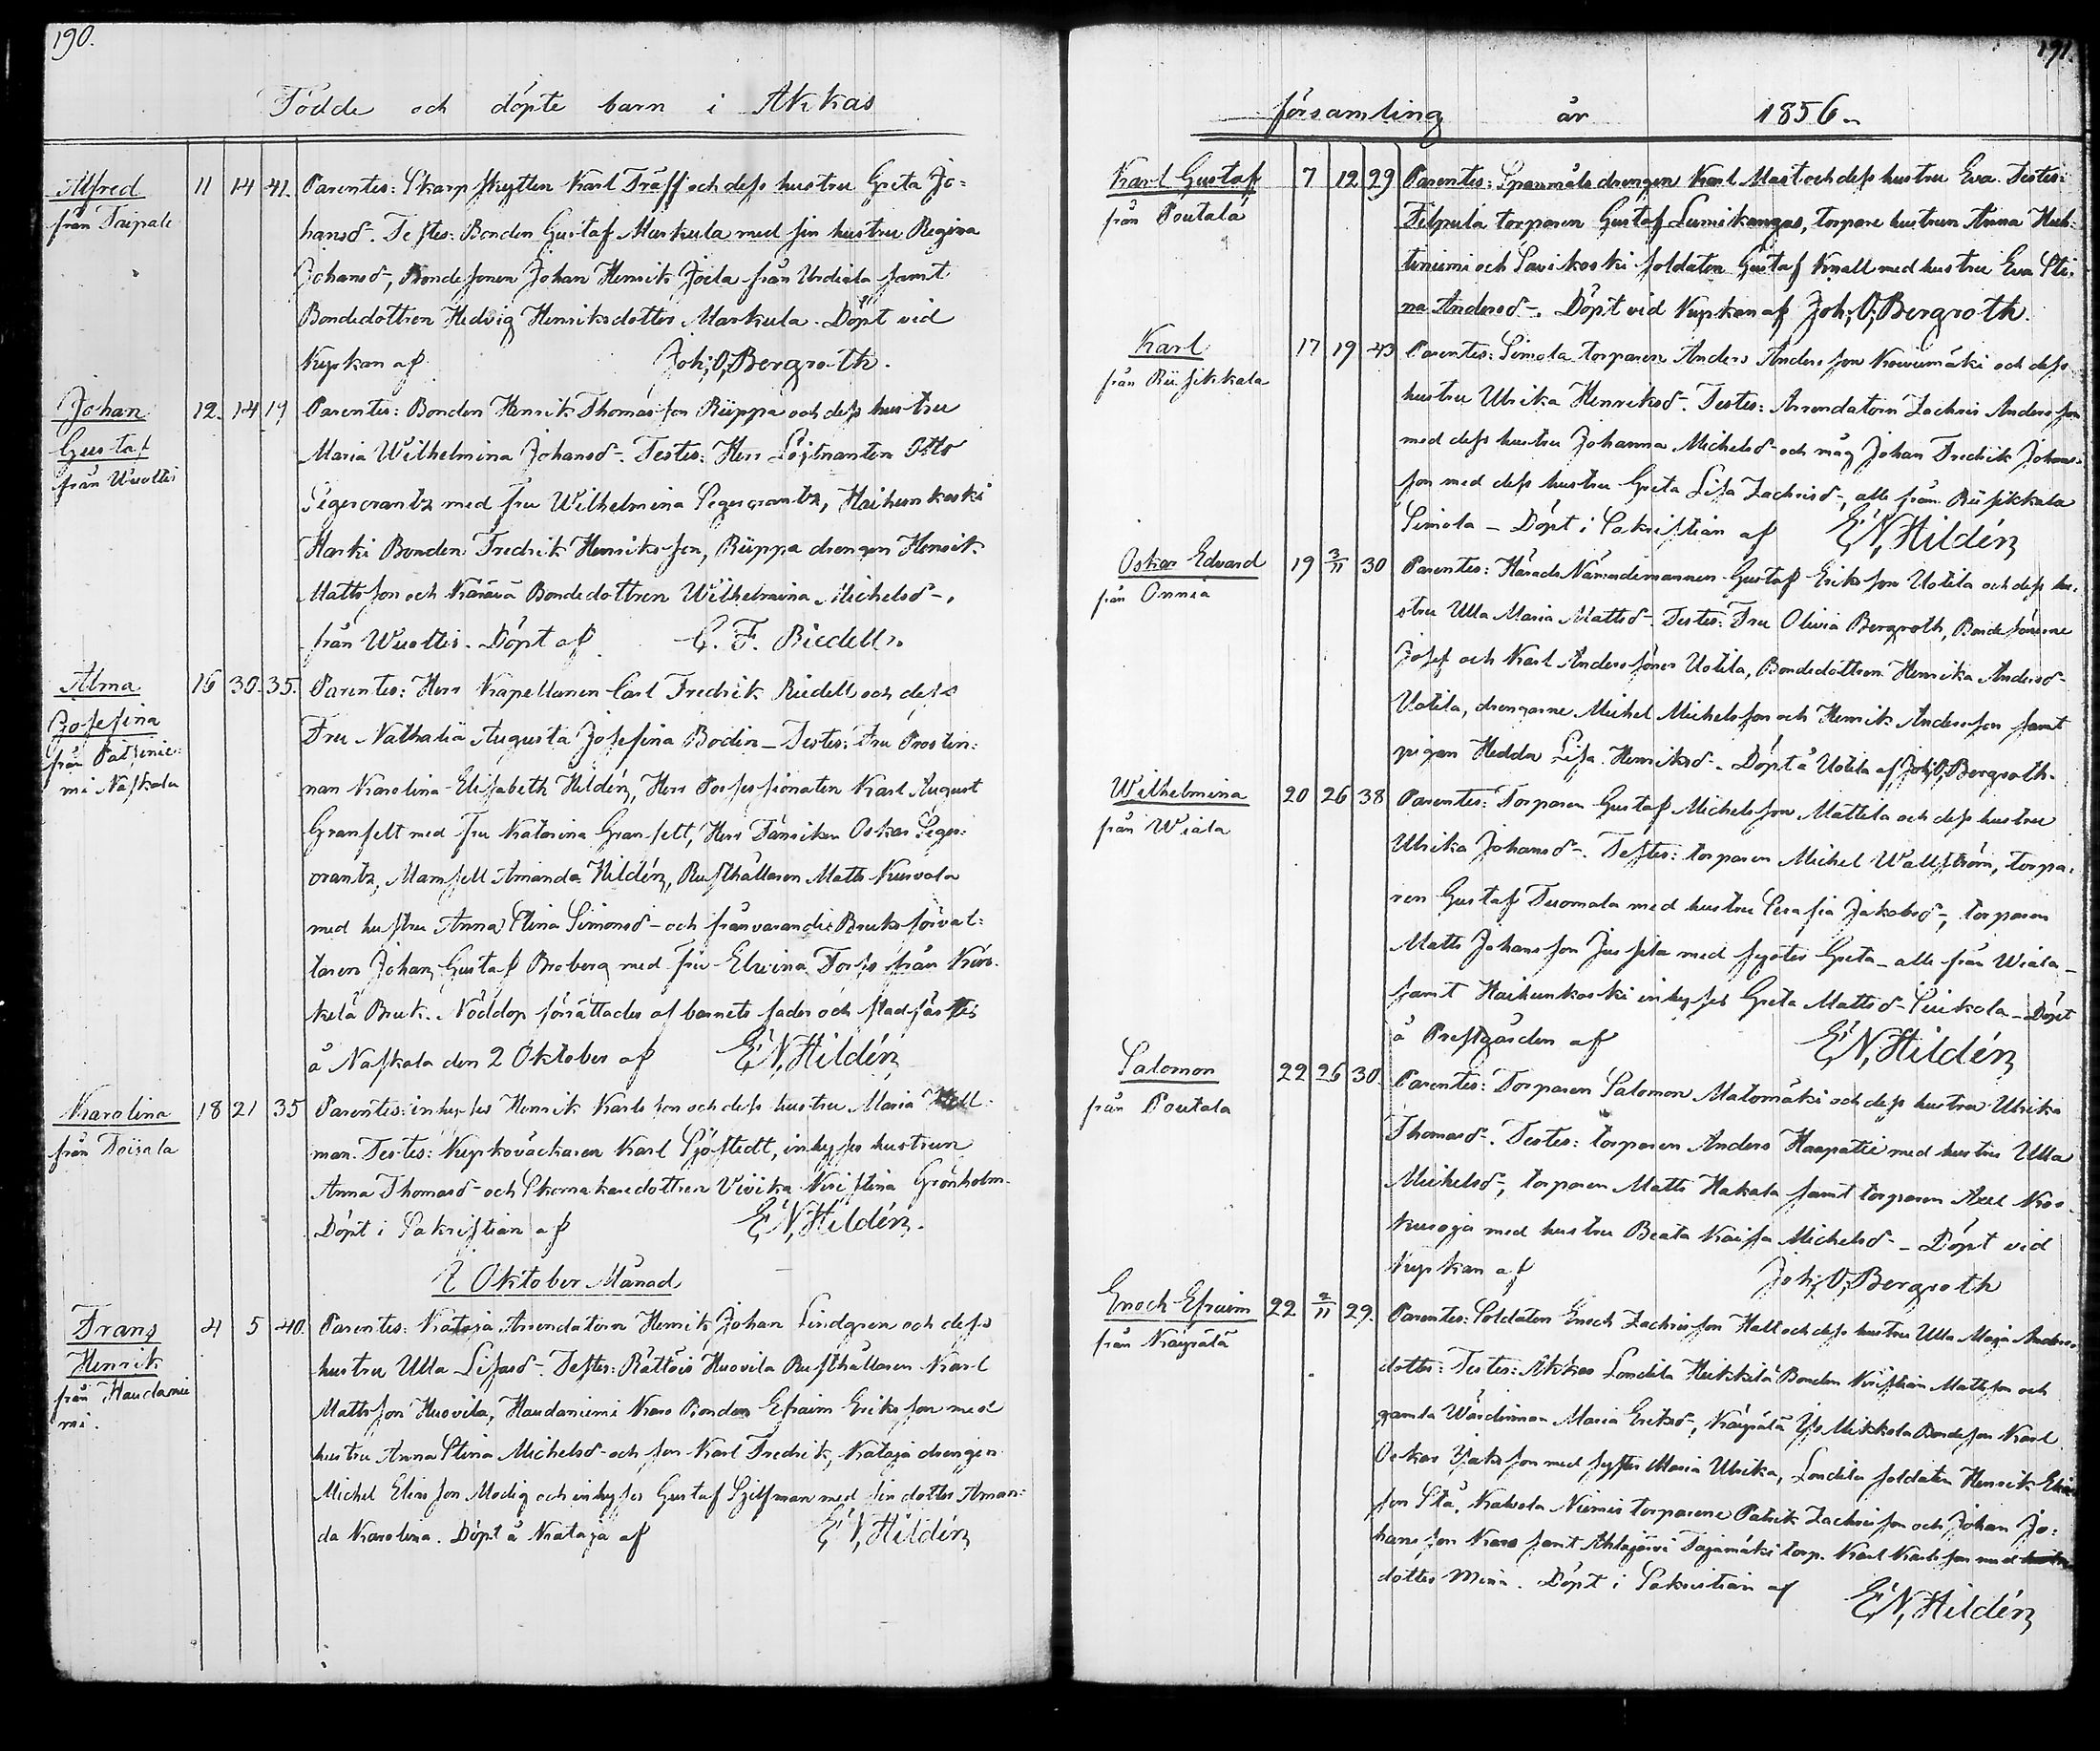 190.
Födde och döpte barn i Akkas
Alfred
från Taipale
11 14 41. Parentes: Skarpskytten Karl Träff och dess hustru Greta Jo=
hansd-. Testes: Bonden Gustaf Markula med sin hustru Regina
Johansd-, Bondesonen Johan Henrik Joela från Urdiala samt
Bondedottren Hedvig Henriksdotter Markula. Döpt vid
Kyrkan af Joh; O; Bergroth.
Johan
Gustaf
från Wuottis
12. 14 19 Parentes: Bonden Henrik Thomasson Riippa och dess hustru
Maria Wilhelmina Johansd-. Testes: Herr Löjtnanten Otto
Segercrantz med Fru Wilhelmina Segercrantz, Haihunkoski
Harki Bonden Fredrik Henriksson, Riippa drengen Henrik
Mattsson och Bondedottren Wilhelmina Michelsd-,
från Wuottis. Döpt af C. F. Riedell.
Alma
Josefina
från
mi Naskala
16 30. 35. Parentes: Herr Kapellanen Carl Fredrik Riedell och dess
Fru Nathalia Augusta Josefina Bodin_ Testes: Fru Prostin:
nan Karolina Elisabeth Hildén, Herr Possessionaten Karl August
Granfelt med Fru Katarina Granfelt, Herr Fänriken Oskar Seger:
crantz, Mamsell Amanda Hildén, Rusthållaren Matts
med hustru Anna Stina Simonsd- och frånvarande Bruksförval:
taren Johan Gustaf Broberg med Fru Elvina Forss från Kir:
kelä Bruk. Nöddop förrättades af barnets fader och stadfästes
å Naskala den 2 Oktober af E; N; Hildén
Karolina
från Toijala
18 21 35 Parentes: inhyses Henrik Karlsson och dess hustru Maria Hell:
man. Testes: Kyrkoväckaren Karl Sjöstedt, inhyses hustrun
Anna Thomasd- och Skomakaredottren Vivika Kristina Grönholm.
Döpt i Sakristian af E; N; Hildén.
I Oktober Månad
Frans
Henrik
från Haudanie
mi.
4 5 40. Parentes: Kataja Arrendatorn Henrik Johan Lindgren och dess
hustru Ulla Lisasd-. Testes: Rättöis Huovila Rusthållaren Karl
Mattsson Huovila, Haudaniemi Karo Bonden Efraim Eriksson med
hustru Anna Stina Michelsd- och son Karl Fredrik, Kataja drengen
Michel Eliasson Modig och inhyses Gustaf Sjelfman med sin dotter Aman:
da Karolina. Döpt å Kataja af E; N; Hildén
191.
församling år 1856.
Karl Gustaf
från Poutala
7 12 29 Parentes: Spanmålsdrengen Karl Mast och dess hustru Eva. Testes:
Filpula torparen Gustaf Lumikangas, torpare hustrun Anna Huh:
tiniemi och Savikoski soldaten Gustaf Knall med hustru Eva Sti:
na Andersd-. Döpt vid Kyrkan af Joh; O; Bergroth.
Karl
från Riisikkala
17 19 43 Parentes: Simola torparen Anders Andersson Koivumäki och dess
hustru Ulrika Henriksd-. Testes: Arrendatorn Zachris Andersson
med dess hustru Johanna Michelsd- och måg Johan Fredrik Johans=
son med dess hustru Greta Lisa Zachrisd-, alla från Riisikkala
Simola _ Döpt i Sakristian af E; N; Hildén
Oskar Edvard
från Onnia
19 3/11 30 Parentes: Härads Nämndemannen Gustaf Eriksson Uotila och dess hu:
stru Ulla Maria Mattsd-. Testes: Fru Olivia Bergroth, Bondesönerne
Josef och Karl Anderssöner Uotila, Bondedottren Henrika Andersd-
Uotila, drengarne Michel Michelsson och Henrik Andersson samt
pigan Hedda Lisa Henriksd-. Döpt å Uotila af Joh; O; Bergroth.
Wilhelmina
från Wiala
20 26 38 Parentes: Torparen Gustaf Michelsson Mattila och dess hustru
Ulrika Johansd-. Testes: torparen Michel Wallström, torpa:
ren Gustaf Tuomala med hustru Serafia Jakobsd-, torparen
Matts Johansson Jussila med syster Greta _ alla från Wiala _
samt Haihunkoski inhyses Greta Mattsd- _ Döpt
å Prestgården af E; N; Hildén
Salomon
från Poutala
22 26 30 Parentes: Torparen Salomon Matomäki och dess hustru Ulrika
Thomasd-. Testes: torparen Anders Haapatie med hustru Ulla
Michelsd-, torparen Matts Hakala samt torparen Axel Kos
kusoja med hustru Beata Kaisa Michelsd- _ Döpt vid
Kyrkan af Joh; O; Bergroth
Enoch Efraim
från Käyrälä
22 2/11 29. Parentes: Soldaten Enoch Zachrisson Hall och dess hustru Ulla Maja Anders
dotter. Testes: Akkas Londila Heikkilä Bonden Kristian Mattsson och
gamla Wärdinnan Maria Eriksd-, Käyrälä Mikkola Bondeson Karl
Oskar Isaksson med syster Maria Ulrika, Londila soldaten Henrik Elias
son Stå, Niemis torparene Patrik Zachrisson och Johan Jo:
hansson Karo samt Ahlajärvi torp. Karl Karlsson med
dotter Mina. Döpt i Sakristian af E; N; Hildén